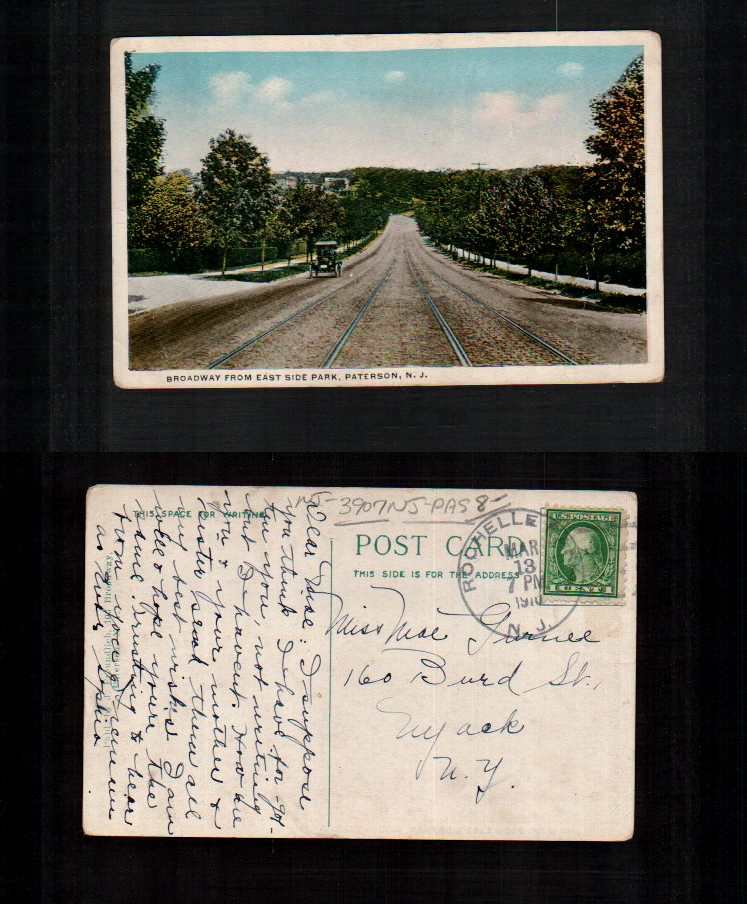 BROADWAY FROM EAST SIDE PARK, PATERSON, N. J.
NJ-3907NJ-PAS 8-
THIS SPACE FOR WRITING
POST CARD
THIS SIDE IS FOR THE ADDRESS
ROCHELLE
MAR
13
7 PM
N. J.
U.S. POSTAGE
Miss Mae
160 Burd St.,
Nyack
N. Y.
Dear Mae: I suppose
you think I have for got-
ten you, not writing
but I havent. How are
you & your mother &
sister send them all
my best wishes I am
well & hope youre the
same. Trusting to hear
from you I remain
as ever Sophia
Broadway